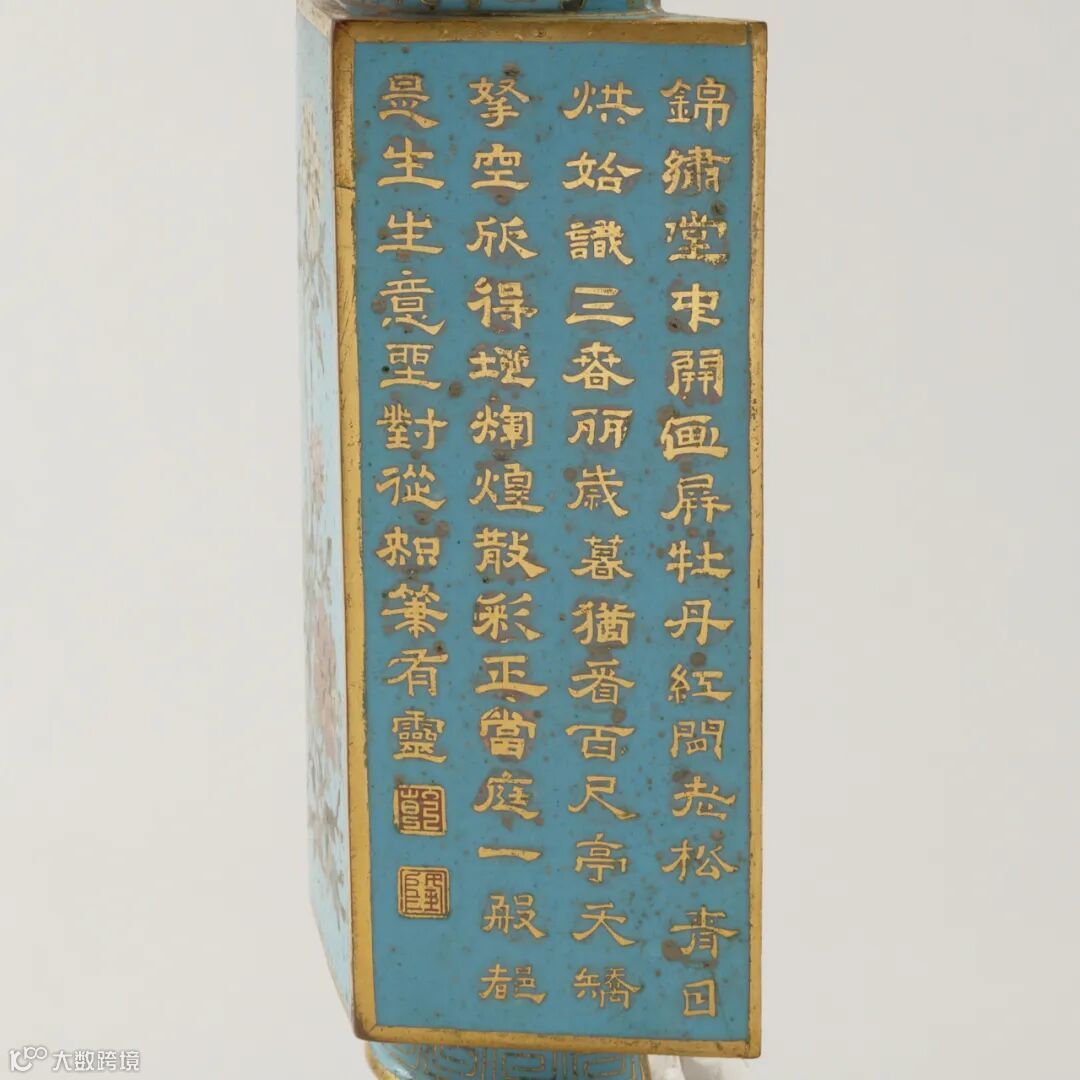 錦繡堂中開画屏牡丹紅間老松青日
烘始識三春丽歳暮猶看百尺亭夭矯
拏空欣得地煇煌散彩正當庭一般都
是生生意聖對從知筆有靈
乾
隆
大数跨境